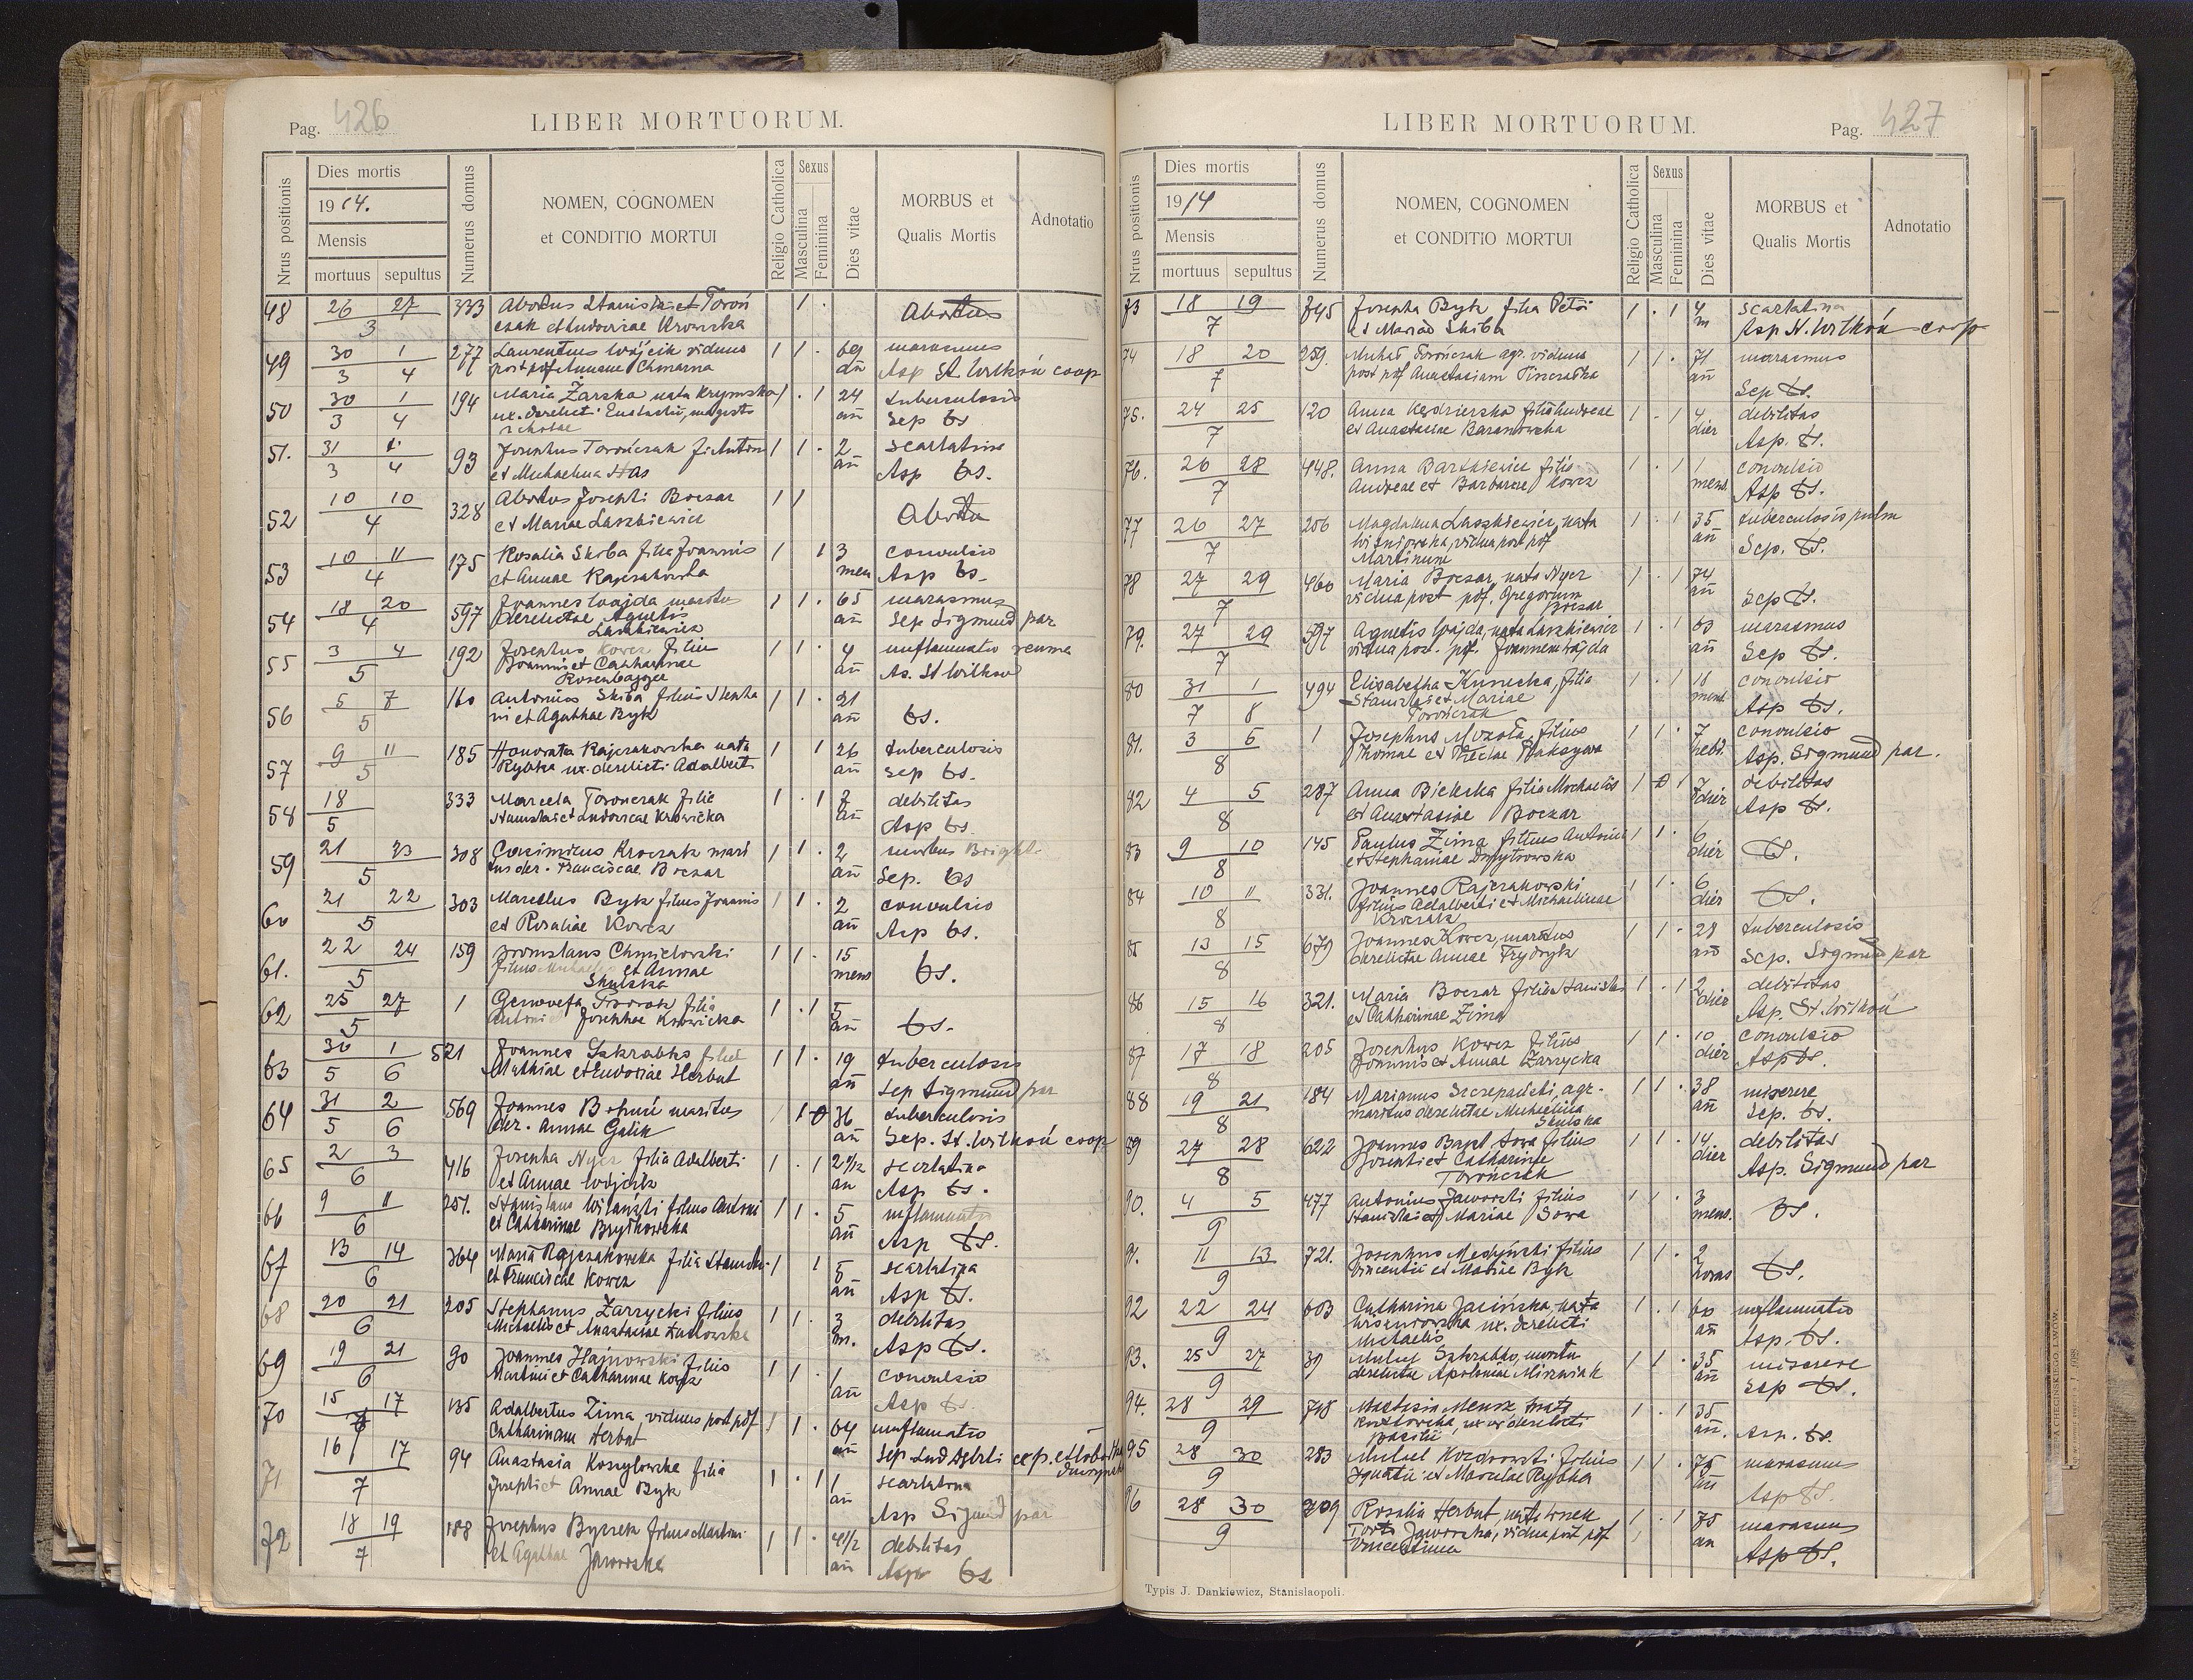 Pag. 426
LIBER MORTUORUM.
Nrus positionis
Dies mortis
1914.
Mensis
mortuus sepultus
Numerus domus
NOMEN, COGNOMEN
et CONDITIO MORTUI
Religio Catholica
Sexus
Masculina
Feminina
Dies vitae
MORBUS et
Qualis Mortis
Adnotatio
48 26 27 333 Abortus Stanisl. et Toroń
3 czak et Ludovicae Krowicka
Abortus
49 30 1 277 Laurentius Wójcik viduus 1 1 · 69 marasmus
3 4 post pdf Annam Chmarna añ Asp St Witkoń coop
50 30 1 194 Maria Żarska nata Krymska 1 · 1 24 tuberculosis
3 4 ux. derelicti Eustachii, magistri añ Sep ts
scholae
51. 31 1 93 Josephus Torończak fi Antoni 1 1 · 2 scarlatina
3 4 et Michaelina Has añ Asp ts.
52 10 10 328 Abortus Josephi Boczar 1 1
4 et Mariae Laszkiewicz Abortu
53 10 11 175 Rosalia Skiba filia Joannis 1 1 3 convulsio
4 et Annae Rajczakowska men Asp ts.
54 18 20 597 Joannes Wajda maritus 1 1 · 65 marasmus
4 derelictae Agnetis añ Sep Sigmund par
Laszkiewicz
55 3 4 192 Josephus Kowcz filius 1 1 · 4 inflammatio
5 Joannis et Catharinae añ As. St Witkoń
56 5 7 160 Antonius Skiba filius Stepha 1 1 · 21
5 ni et Agathae Byk añ ts.
57 9 11 185 Honorata Rajczakowska nata 1 1 26 tuberculosis
5 Rybka ux. derelicti Adalberti añ Sep ts.
58 18 333 Marcela Torończak filia 1 · 1 debilitas
5 Stanislai et Ludovicae Krowicka Asp ts.
59 21 23 308 Casimirus Kroczak mari 1 1 · 2 morbus Bright
5 tus der. Franciscae Boczar añ Sep. ts
60 21 22 303 Marcellus Byk filius Joannis 1 1 · 2 convulsio
5 et Rosaliae Kowcz añ Asp ts.
61. 22 24 159 Bronislaus Chmielowski 1 1 · 15
5 filius Michaelis et Annae mens ts.
Skulska
62 25 27 1 Genovefa filia 1 · 1 5
5 Antoni Josephae Krowicka añ ts.
63 30 1 521 Joannes Szkrabko filius 1 1 · 19 tuberculosis
5 6 Mathiae et Eudoxiae Herbut añ Sep Sigmund par
64 31 2 569 Joannes maritus 1 1 0 36 tuberculosis
5 6 der. Annae Galik añ Sep. St. Witkoń coop
65 2 3 416 Josepha Nycz filia Adalberti 1 · 1 scarlatina
6 et Annae Wójcik an Asp ts.
66 9 11 251. Stanislaus Wilański filius Antoni 1 1 · 5 inflammatio
6 et Catharinae añ Asp ts.
67 13 14 364 Maria Rajczakowska filia Stanisl. 1 1 5 scarlatina
6 et Franciscae Kowcz añ Asp ts.
68 20 21 205 Stephanus Zarzycki filius 1 1 · 3 debilitas
6 Michaelis et Anastasiae m. Asp ts.
69 19 21 90 Joannes Hajnowski filius 1 1 · 1 convulsio
6 Martini et Catharinae Kowcz añ Asp ts.
70 15 17 135 Adalbertus Zima, viduus post pdf 1 1 · 64 inflammatio
7 Catharinam Herbut añ
71 16 17 94 Anastasia Koszylowska filia 1 · 1 1 scarlatina
7 Josephi et Annae Byk añ Asp Sigmund par
72 18 19 188 Josephus Byczek filius Martini 1 1 · 4 1/2 debilitas
7 et Agathae Jaworska añ Asp ts
LIBER MORTUORUM.
Pag. 427
Nrus positionis
Dies mortis
1914
Mensis
mortuus sepultus
Numerus domus
NOMEN, COGNOMEN
et CONDITIO MORTUI
Religio Catholica
Sexus
Masculina
Feminina
Dies vitae
MORBUS et
Qualis Mortis
Adnotatio
73 18 19 345 Josepha Byk filia Petri 1 · 1 4 scarlatina
7 et Mariae Skiba m Asp St. Witkoń coop
74 18 20 259. Michał Torończak agr. viduus 1 1 · 71 marasmus
7 post pdf Anastasiam añ Sep ts.
75. 24 25 120 Anna Kędzierska filia Andreae 1 · 1 4 debilitas
7 et Anastasiae Baranowska dier Asp. ts.
76. 26 28 448. Anna Bartkiewicz filia 1 · 1 1 convulsio
7 Andreae et Barbarae Kowcz mens. Asp ts.
77 26 27 256 Magdalena Laszkiewicz, nata 1 · 1 35 tuberculosis pulm
7 Wiśniowska, vidua post pdf añ Sep. ts.
Martinum
78 27 29 460 Maria Boczar, nata Nycz 1 · 1 74
7 vidua post pdf. Gregorium añ Sep ts.
Boczar
79. 27 29 597 Agnetis Wajda, nata Laszkiewicz 1 · 1 63 marasmus
7 vidua post. pdf. Joannem Wajda añ Sep ts.
80 31 1 494 Elisabetha Kunecka, filia 1 · 1 18 convulsio
7 8 Stanislai et Mariae mens. Asp ts.
Torończak
81. 3 5 1 Josephus Mozoła, filius 1 1 · 7 convulsio
8 Thomae et Theclae hebd. Asp. Sigmund par.
82 4 5 287 Anna Bielska filia Michaelis 1 0 1 7 debilitas
8 et Anastasiae Boczar dier Asp ts.
83 9 10 145 Paulus Zima filius Antonii 1 1 · 6
8 et Stephaniae Dmytrowska dier ts.
84 10 11 331. Joannes Rajczakowski 1 1 · 6
8 filius Adalberti et Michaelinae dier ts.
Kroczak
85 13 15 679 Joannes Kowcz, maritus 1 1 · 28 tuberculosis
8 derelictae Annae Frydryk añ Sep. Sigmund par
86 15 16 321. Maria Boczar filia Stanislai 1 · 1 2 debilitas
8 et Catharinae Zima dier Asp. St. Witkoń
87 17 18 205 Josephus Kowcz filius 1 1 · 10 convulsio
8 Joannis et Annae Zarzycka dier Asp ts.
88 19 21 184 Marianus Szczepański, agr. 1 1 · 38 miserere
8 maritus derelictae Michaelina añ Sep. ts.
Skulska
89 27 28 622 Joannes Bapt Sowa filius 1 1 · 14 debilitas
8 Josephi et Catharinae dier Asp. Sigmund par
Torończak
90. 4 5 477 Antonius Jaworski filius 1 1 · 3
9 Stanislai et Mariae Sowa mens. ts.
91. 11 13 721. Josephus Medyński filius 1 1 · 2
9 Vincentii et Mariae Byk horas ts.
92 22 24 603 Catharina Jasińska, nata 1 · 1 60 inflammatio
9 Wiśniowska ux. derelicti añ Asp. ts.
Michaelis
93. 25 27 39 Michael Szkrabko, maritu 1 1 · 35 miserere
9 derelictae Apoloniae añ Sep ts.
94. 28 29 718 nata 1 · 1 35
9 Kozłowska, uxor derelicti añ. Asp. ts.
Basilii
95 28 30 283 Michael filius 1 1 · 75 marasmus
9 Ignatii et Marcelae Rybka añ Asp ts.
96 28 30 709 Rosalia Herbut, nata 1 · 1 75 marasmus
9 Jaworska, vidua post pdf an Asp ts.
Vincentium
Typis J. Dankiewicz, Stanislaopoli.